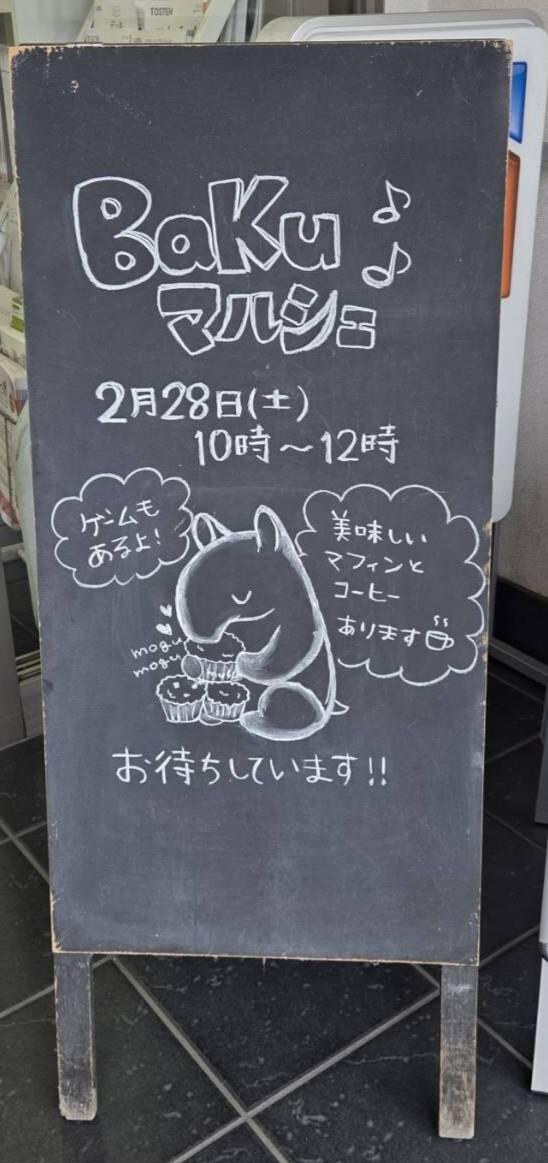 TOSTEM
BaKu
マルシェ
2月28日(土)
10時～12時
ゲームも
あるよ!
美味しい
マフィンと
コーヒー
あります
mogu
mogu
お待ちしています!!